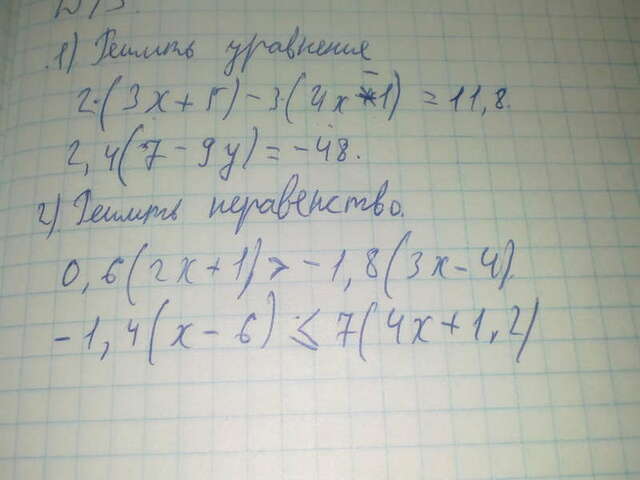 Д/З.
1) Решить уравнения
2·(3x+5)-3(4x-1)=11,8.
2,4(7-9y)=-48.
2) Решить неравенство.
0,6(2x+1)>-1,8(3x-4)
-1,4(x-6)≤7(4x+1,2)